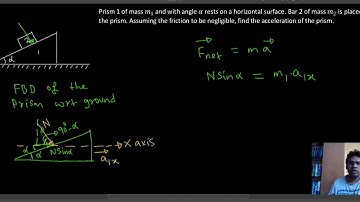 Prism 1 of mass m₁ and with angle α rests on a horizontal surface. Bar 2 of mass m₂ is place
the prism. Assuming the friction to be negligible, find the acceleration of the prism.
2
1
α
FBD of the
Prism wrt ground
F⃗net = m a⃗
N sinα = m₁·a₁ₓ
N
90-α
α
α
N sinα
X axis
a₁ₓ